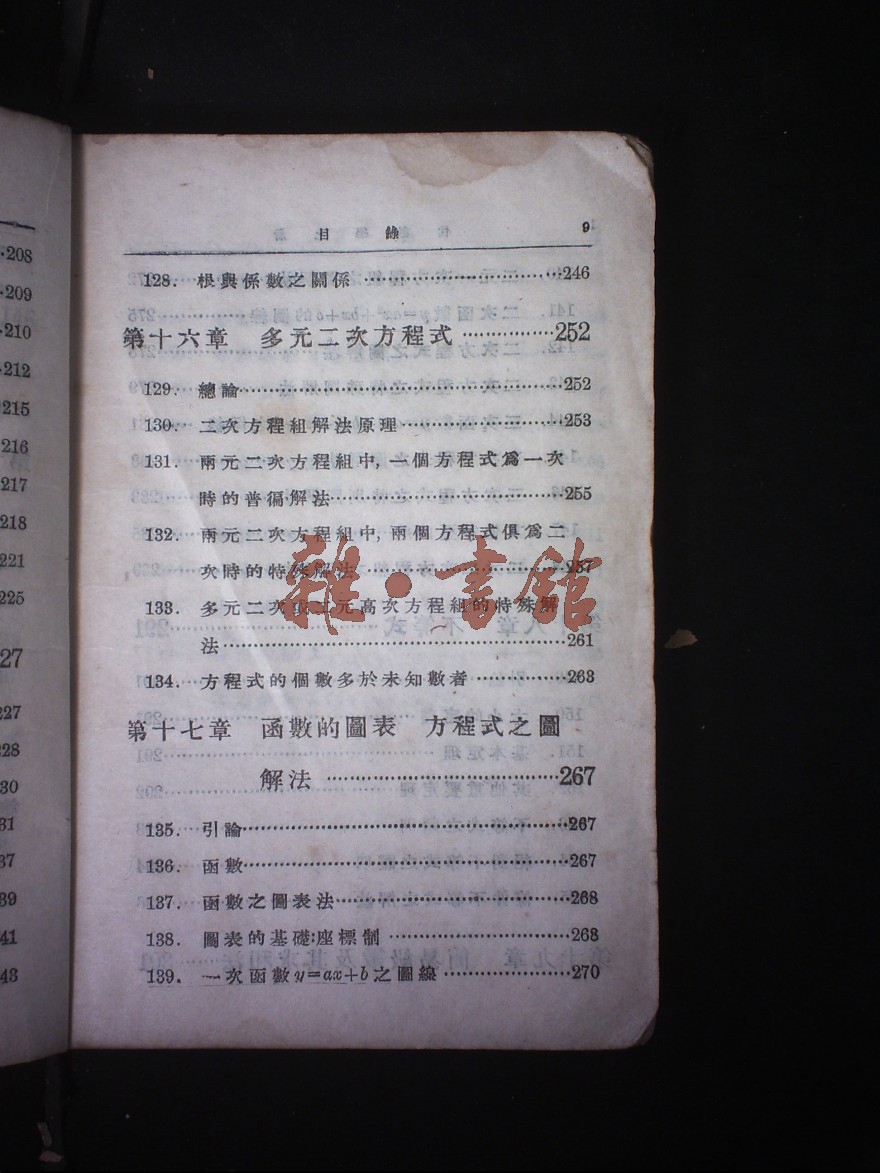 ·208
·209
·210
·212
215
216
217
218
221
225
27
227
228
30
31
37
39
41
43
目錄 9
128. 根與係數之關係 ……………………246
第十六章 多元二次方程式 ……………252
129. 總論……………………………252
130. 二次方程組解法原理………………253
131. 兩元二次方程組中, 一個方程式爲一次
時的普徧解法……………………255
132. 兩元二次方程組中, 兩個方程式俱爲二
次時的特殊解法……………………257
133. 多元二次或二元高次方程組的特殊解
法……………………………………261
134. 方程式的個數多於未知數者…………263
第十七章 函數的圖表 方程式之圖
解法 ……………………………267
135. 引論……………………………267
136. 函數……………………………267
137. 函數之圖表法……………………268
138. 圖表的基礎:座標制 ………………268
139. 一次函數y=ax+b之圖線……………270
雜·書館